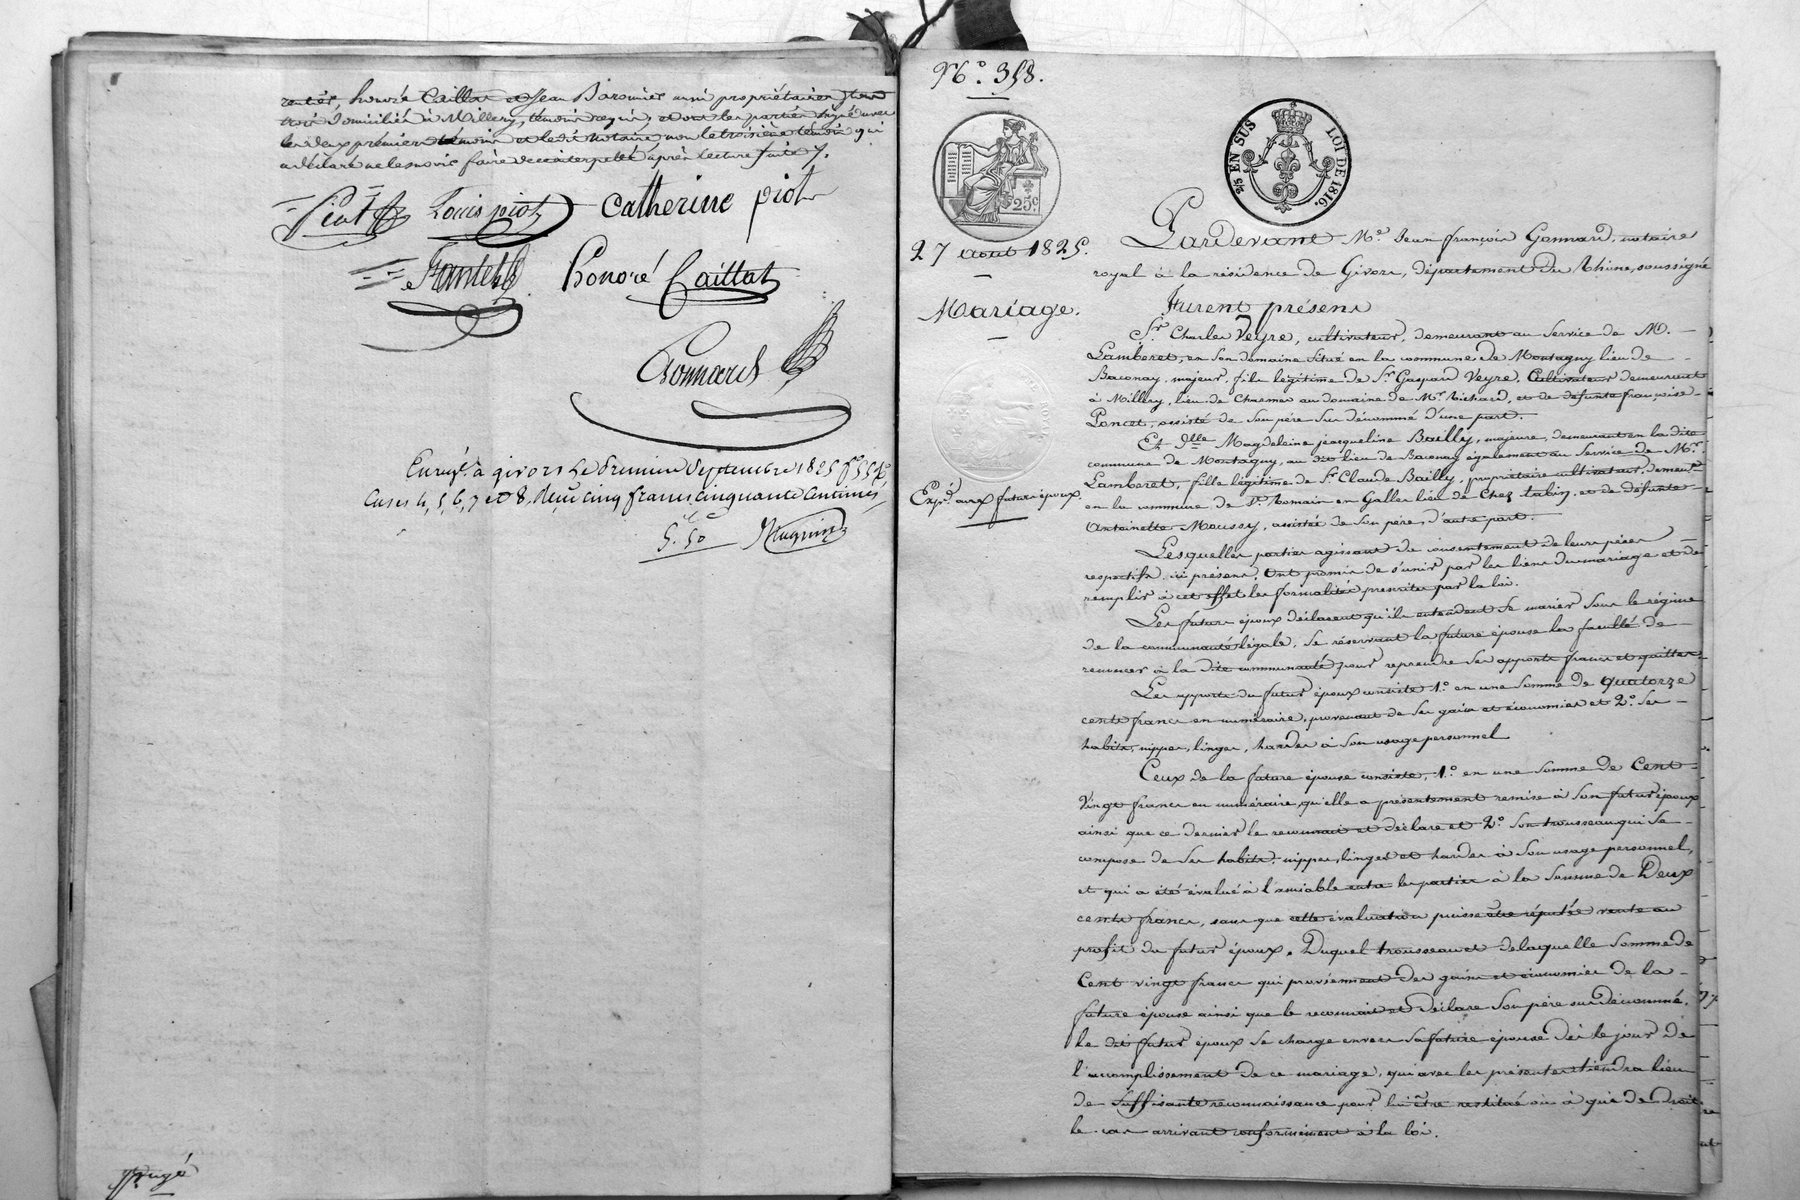 rentés, honoré Caillat et Jean Baromier aussi propriétaires tous
trois domiciliés à Millery, témoins requis, et ont les parties signé avec
les deux premiers témoins et le dit notaire non le troisième témoin qui
a déclaré ne le savoir faire de ce interpellé après lecture faite
Piot Louis piot Catherine piot
Honoré Caillat
Gonnard
Enregé. à givors le premier septembre 1825 fo 55
Cases 4, 5, 6, 7 et 8, reçu cinq francs cinquante centimes
5. 50 Magnin
No. 358.
25c.
2/5 EN SUS LOI DE 1816.
27 aout 1825.
Mariage.
Expd. aux futurs époux.
Pardevant Me. Jean françois Gonnard, notaire
royal à la résidence de Givors, département du Rhône, soussigné
Furent présens
Sr. Charles Veyre, cultivateur, demeurant au service de M.
Lamberet, en son domaine situé en la commune de Montagny lieu de
Baconay, majeur, fils légitime de Sr. Gaspard Veyre, Cultivateur demeurant
à Millery, lieu de Charmes au domaine de Mr. Richard, et de défunte françoise
Poncet, assisté de son père sus dénommé d'une part.
Et Dlle Magdeleine jacqueline Bailly, majeure, demeurant en la dite
commune de Montagny, au dit lieu de Baconay également au service de Mr.
Lamberet, fille légitime de Sr. Claude Bailly, propriétaire cultivateur, demeurt.
en la commune de St. Romain en Gallet lieu de Chez tabin, et de défunte
Antoinette Moussy, assistée de son père, d'autre part.
Lesquelles parties agissant du consentement de leurs pères
respectifs, ici présens, ont promis de s'unir par les liens du mariage et de
remplir à cet effet les formalités prescrites par la loi.
Les futurs époux déclarent qu'ils entendent se marier sous le régime
de la communauté légale, se réservant la future épouse la faculté de
renoncer à la dite communauté pour reprendre ses apports francs et quittes.
Les apports du futur époux consiste 1o. en une somme de quatorze
cents francs en numéraire, provenant de ses gains et économies et 2o. ses
habits, nippes, linges, hardes à son usage personnel
Ceux de la future épouse consiste, 1o. en une somme de Cent
Vingt francs en numéraire qu'elle a présentement remise à son futur époux
ainsi que ce dernier le reconnait et déclare et 2o. son trousseau qui se
compose de ses habits, nippes, linges et hardes à son usage personnel,
et qui a été évalué à l'amiable entre les parties à la somme de Deux
cents francs, sans que cette évaluation puisse être réputée vente au
profit du futur époux. Duquel trousseau et de laquelle somme de
Cent vingt francs qui proviennent des gains et économies de la
future épouse ainsi que le reconnait et déclare son père sus dénommé,
le dit futur époux se charge envers sa future épouse dès le jour de
l'accomplissement de ce mariage, qui avec les présentes tiendra lieu
de suffisante reconnaissance pour lui être restitué ou à qui de droit
le cas arrivant conformément à la loi.